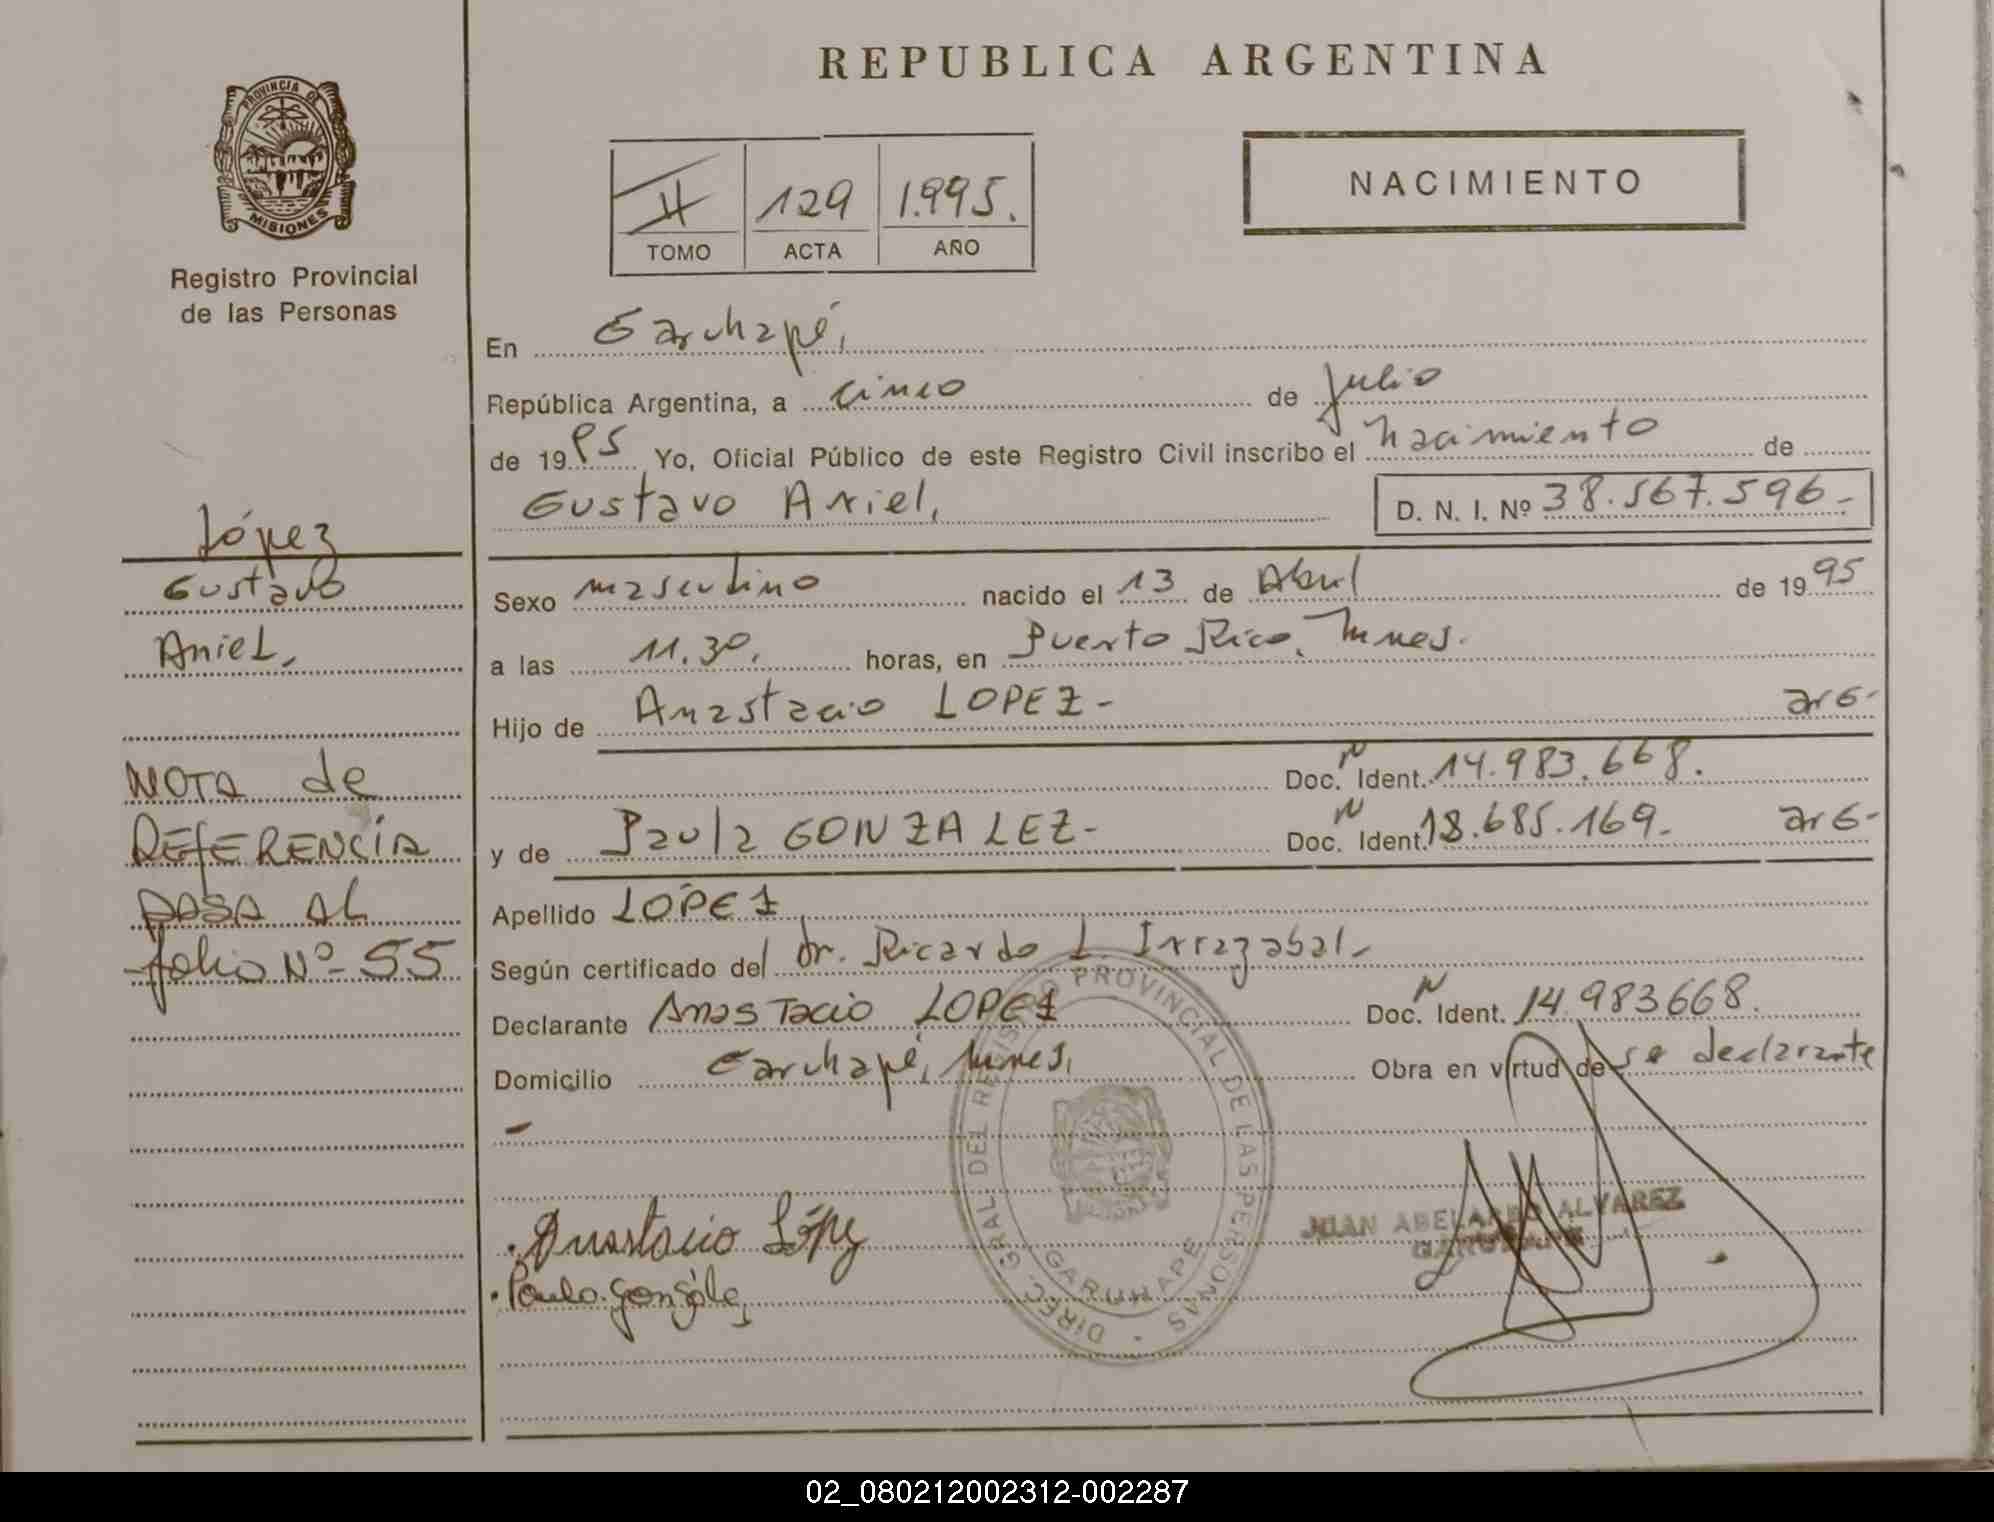 REPUBLICA ARGENTINA
PROVINCIA DE
MISIONES
Registro Provincial
de las Personas
II 129 1.995.
TOMO ACTA AÑO
NACIMIENTO
En Garuhapé,
República Argentina, a cinco de Julio
de 1995 Yo, Oficial Público de este Registro Civil inscribo el Nacimiento de
Gustavo Ariel, D. N. I. Nº 38.567.596-
López
Gustavo
Ariel,
Sexo masculino nacido el 13 de Abril de 1995
a las 11.30. horas, en Puerto Rico, Mnes.
Hijo de Anastacio LOPEZ- arg-
Doc. N Ident. 14.983.668.
y de Paula GONZALEZ- Doc. N Ident. 18.685.169. arg-
NOTA de
REfERENCIA
PASA AL
folio Nº 55
Apellido LÓPEZ
Según certificado del Dr. Ricardo L. Irrazabal-
Declarante Anastacio LOPEZ Doc. N Ident. 14.983668.
Domicilio Garuhapé, Mnes, Obra en virtud de se declarante
-
DIREC. GRAL DEL REGISTRO PROVINCIAL DE LAS PERSONAS
GARUHAPE
Anastacio López
Paula González
JUAN ABELARDO ALVAREZ
GARUHAPE
02_080212002312-002287